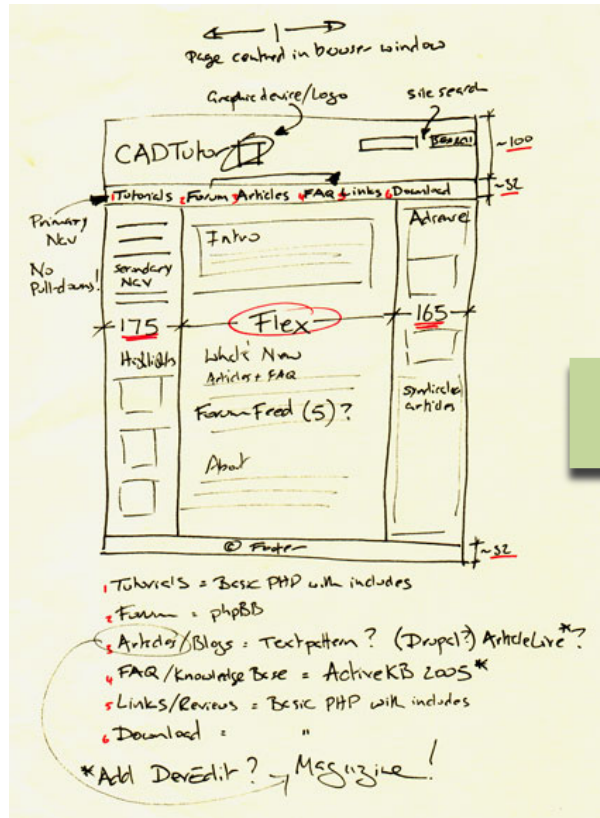 Page centred in browser window
Graphic device/Logo
site search
CADTutor
SEARCH
~100
1 Tutorials 2 Forum 3 Articles 4 FAQ 5 Links 6 Download
~32
Primary Nav
No Pull-downs!
Secondary Nav
Intro
Adsense
175
Flex
165
Highlights
What's New
Articles + FAQ
Forum Feed (5) ?
Syndicated articles
About
© Footer
~32
1 Tutorials = Basic PHP with includes
2 Forum = phpBB
3 Articles/Blogs = Textpattern? (Drupal?) ArticleLive*?
4 FAQ/Knowledge Base = ActiveKB 2005*
5 Links/Reviews = Basic PHP with includes
6 Download = "
*Add DevEdit? Magazine!